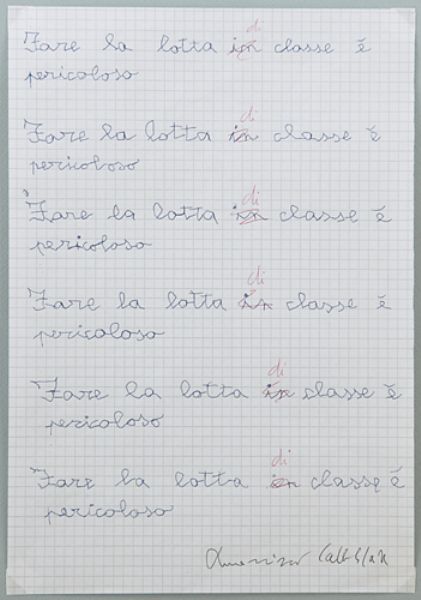 di
Fare la lotta in classe è
pericoloso
di
Fare la lotta in classe è
pericoloso
di
Fare la lotta in classe è
pericoloso
di
Fare la lotta in classe è
pericoloso
di
Fare la lotta in classe è
pericoloso
di
Fare la lotta in classe è
pericoloso